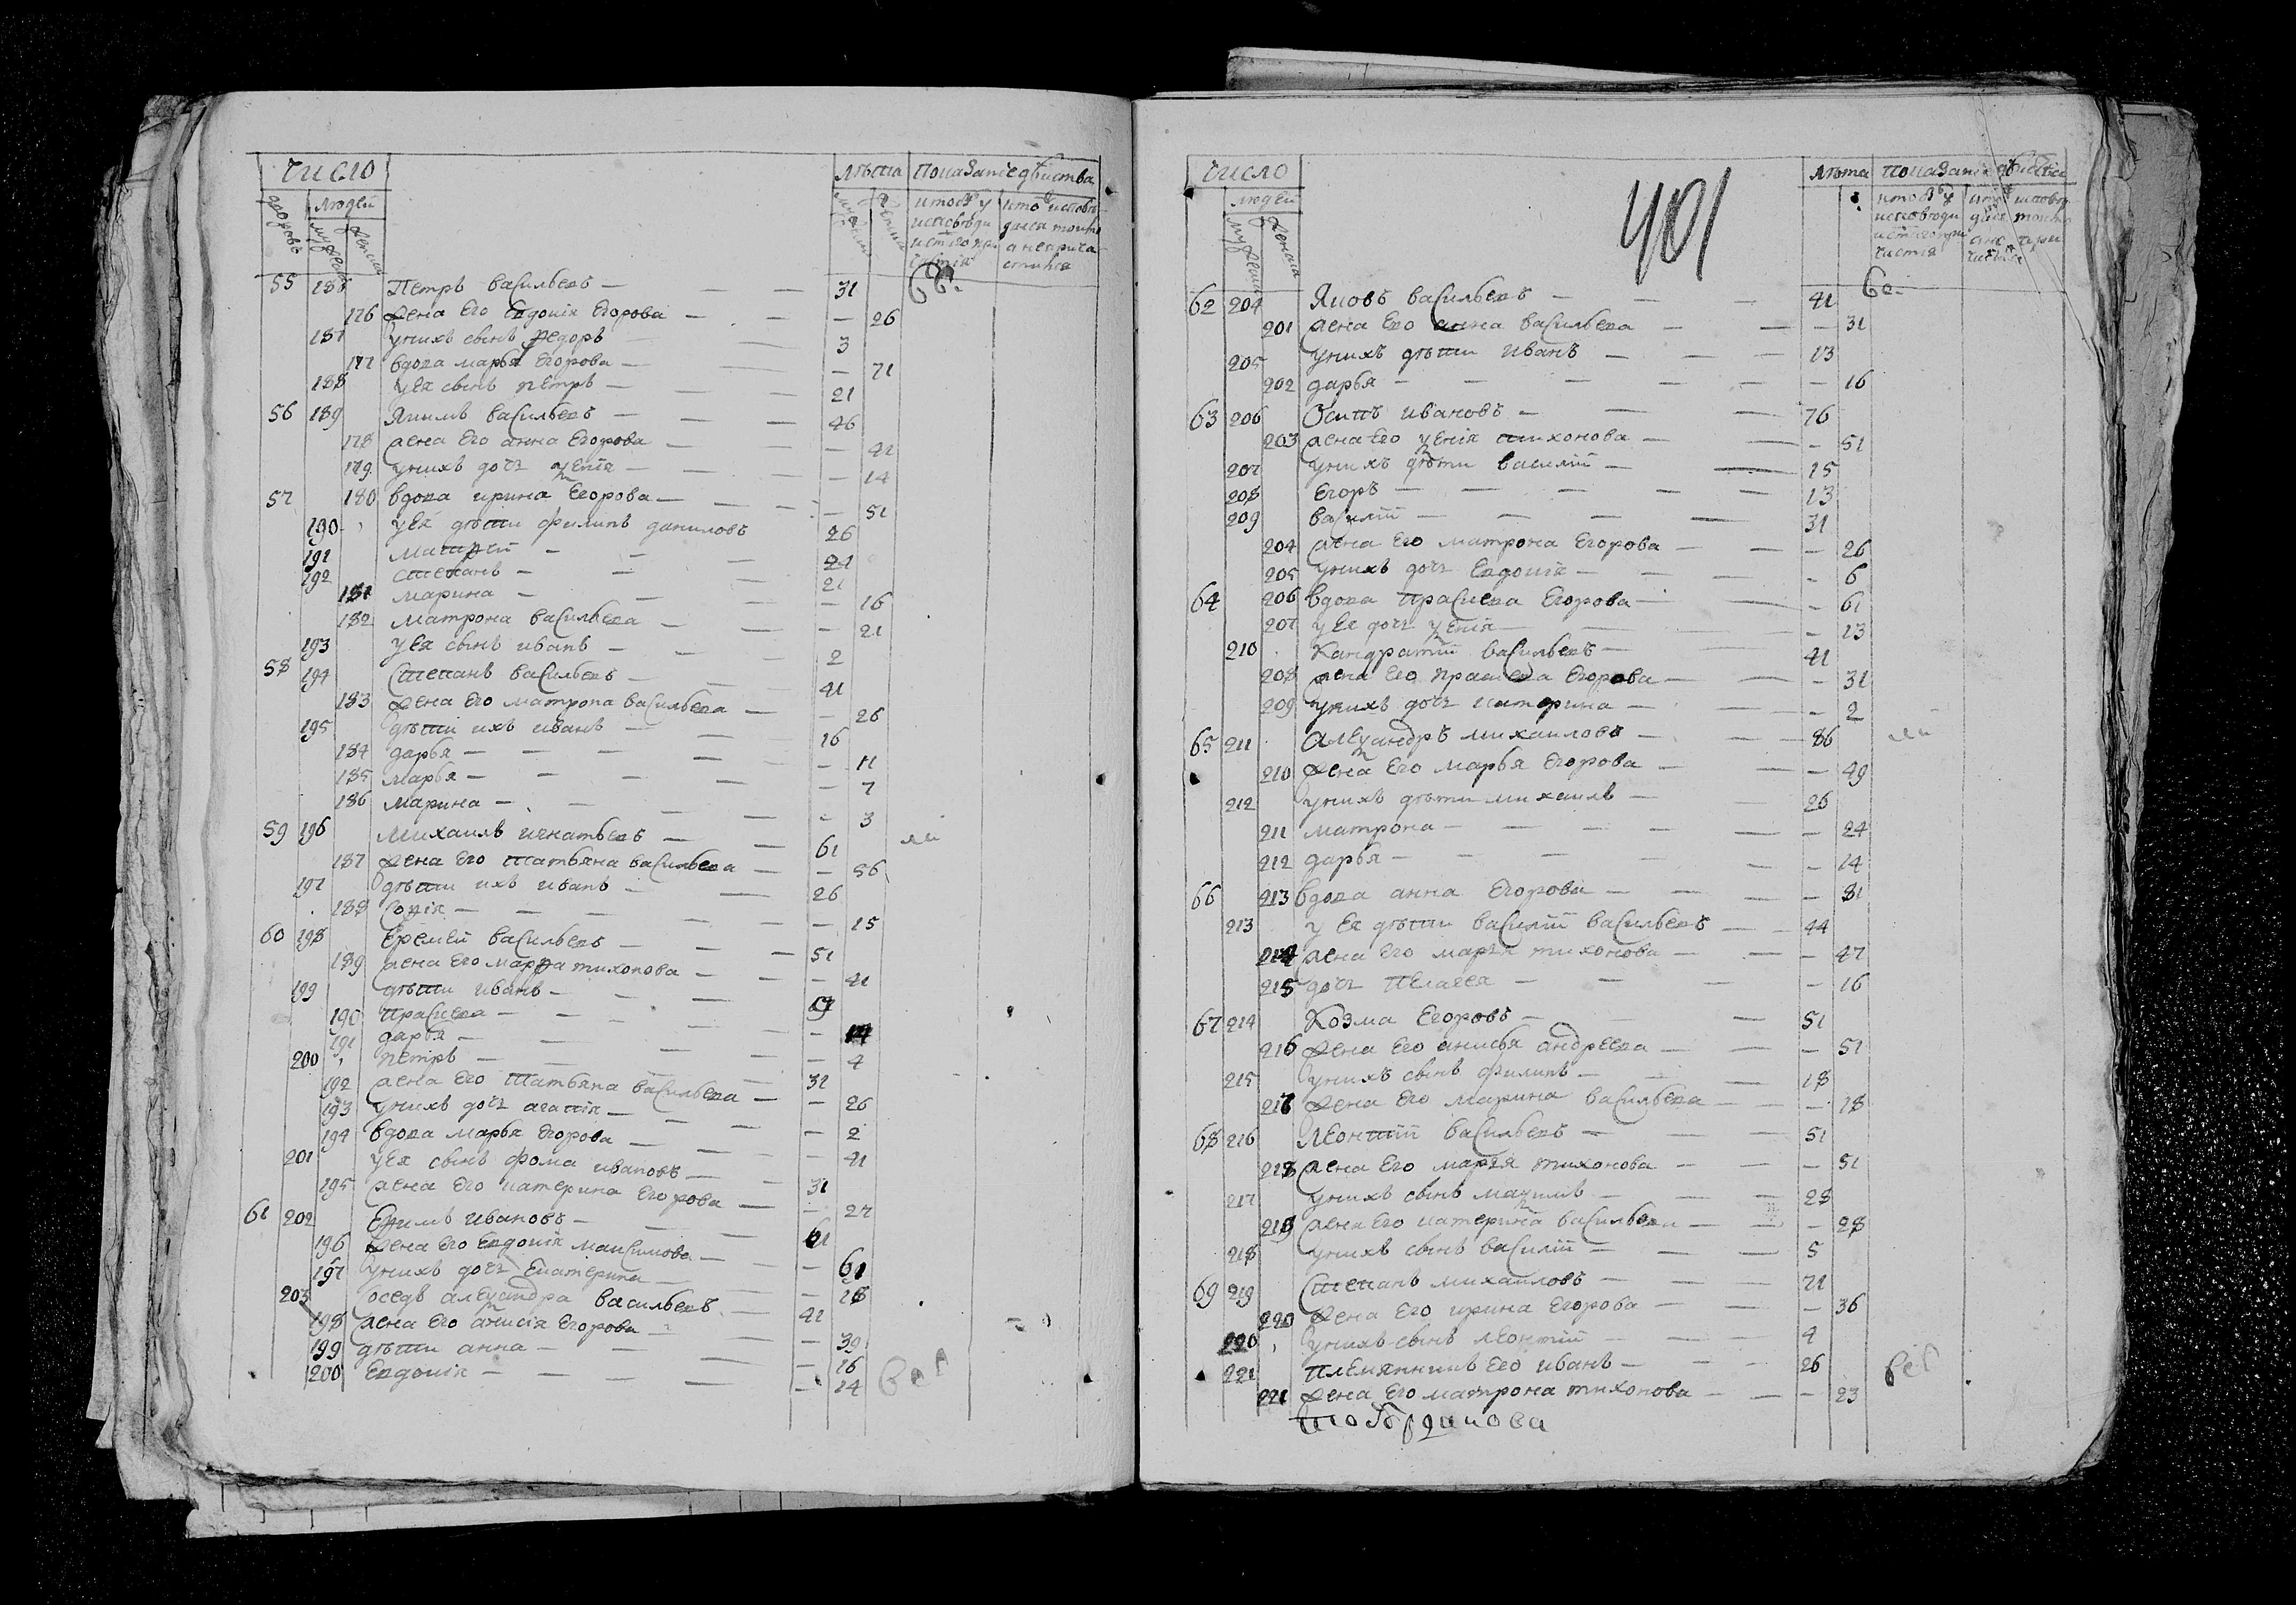 число
лѣта показание дѣиства
дворовъ
людеи
мужеска
женска
55 186 Петръ васильевъ — 31
176 жена его евдокія егорова — 26
187 у нихъ сынъ ѳедоръ 3
177 вдова марья егорова — 71
188 у ея сынъ петръ — 21
56 189 Якимъ васильевъ — 46
178 жена его анна егорова — 42
179 у нихъ дочь — 14
57 180 вдова ирина егорова — 51
190 у ея дѣти филипъ даниловъ 26
191 матѳеи — 24
192 степанъ — 21
181 марина — 16
182 матрона васильева — 21
193 у ея сынъ иванъ — 2
58 194 Степанъ васильевъ — 41
183 жена его матрона васильева — 26
195 дѣти ихъ иванъ — 16
184 дарья — 11
185 марья — 7
186 марина — 3
59 196 Михаилъ игнатьевъ — 61
187 жена его татьяна васильева — 56
197 дѣти ихъ иванъ — 26
188 соѳія — 15
60 198 Еремеи васильевъ — 51
189 жена его марѳа тихонова — 41
199 дѣти иванъ —
190 прасковя —
191 дарья — 4
200 петръ — 31
192 жена его татьяна васильева — 26
193 у нихъ дочь агапія — 2
194 вдова марья егорова — 41
201 у ея сынъ фома ивановъ — 31
195 жена его катерина егорова — 27
61 202 Ефимъ ивановъ — 61
196 жена его евдокія максимова — 61
197 у нихъ дочь екатерина — 18
203 сосед александра васильевъ 42
198 жена его анисія егорова — 39
199 дѣти анна — 16
200 евдокія — 14
401
число
лѣта показание
людеи
мужеска
женска
62 204 Яковъ васильевъ — 41
201 жена его анна васильева — 31
205 у нихъ дѣти иванъ — 13
202 дарья — 16
63 206 Осипъ ивановъ — 76
203 жена его тихонова — 51
207 у нихъ дѣти василіи — 15
208 егоръ — 13
209 василіи — 31
204 жена его матрона егорова — 26
205 у нихъ дочь евдокія — 6
64 206 вдова прасковя егорова — 61
207 у ея дочь — 13
210 Кандратіи васильевъ — 41
208 жена его прасковя егорова — 31
209 у нихъ дочь катерина — 2
65 211 Александръ михаиловъ — 86
210 жена его марья егорова — 49
212 у нихъ дѣти михаилъ — 26
211 матрона — 24
212 дарья — 14
66 213 вдова анна егорова — 81
213 у ея дѣти василіи васильевъ — 44
214 жена его марья тихонова — 47
215 дочь пелагея — 16
67 214 Козма егоровъ — 51
216 жена его анисья андреева — 51
215 у нихъ сынъ филипъ — 18
217 жена его марина васильева — 18
68 216 Леонтіи васильевъ — 51
218 жена его марья тихонова — 51
217 у нихъ сынъ максимъ — 28
219 жена его катерина васильева — 28
218 у нихъ сынъ василіи — 5
69 219 Степанъ михаиловъ — 41
220 жена его ирина егорова — 36
220 у нихъ сынъ леонтіи — 4
221 племянникъ его иванъ — 26
221 жена его матрона тихонова — 23